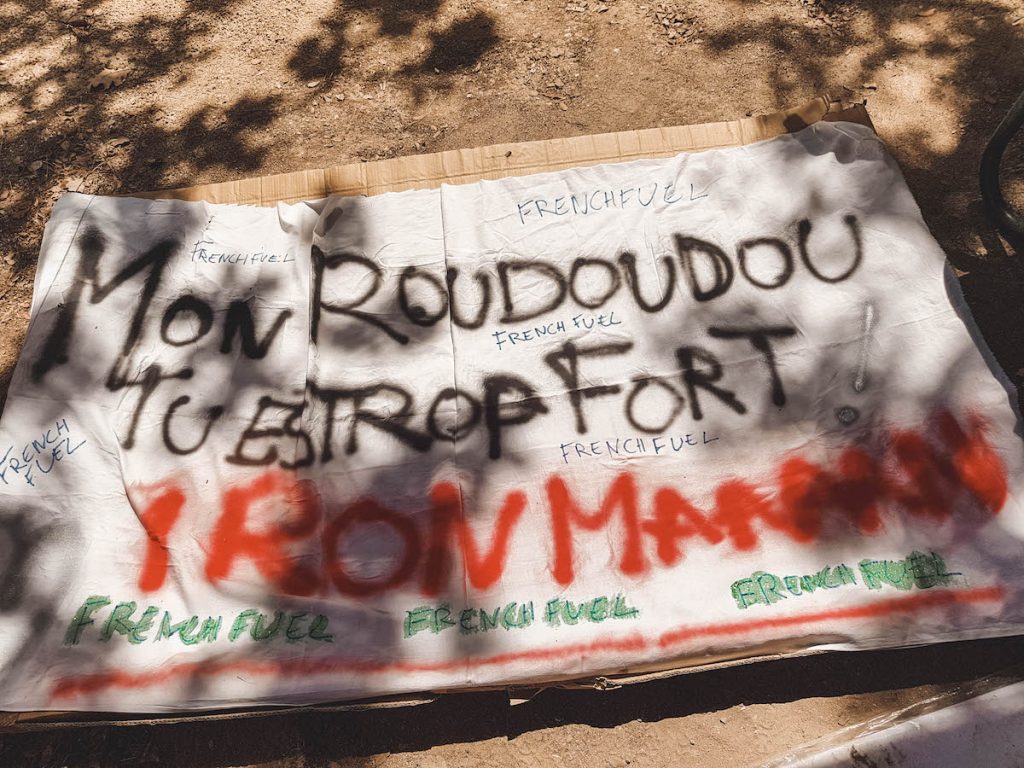 FRENCHFUEL
FRENCHFUEL
MON ROUDOUDOU
FRENCH FUEL
TU ES TROP FORT !
FRENCH
FUEL
FRENCHFUEL
IRONMAAAAAN
FRENCH FUEL FRENCH FUEL FRENCH FUEL